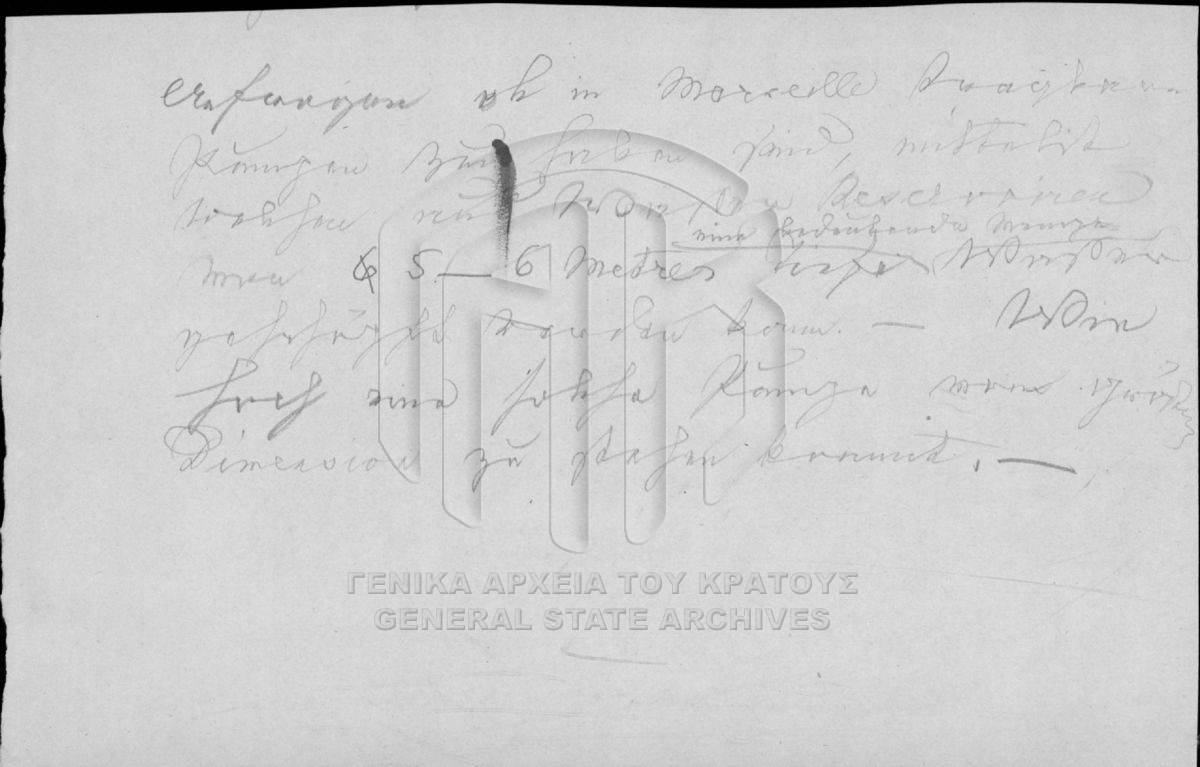 Anfragen ob in Marseille tragbare
Pumpen zu haben sind, mittelst
welchen aus Reservoiren
eine bedeutende Menge
von 5 — 6 Metres tiefe Wasser
geschöpft werden kann. — Wie
hoch eine solche Pumpe von
Dimension zu stehen kommt. —
ΓΕΝΙΚΑ ΑΡΧΕΙΑ ΤΟΥ ΚΡΑΤΟΥΣ
GENERAL STATE ARCHIVES